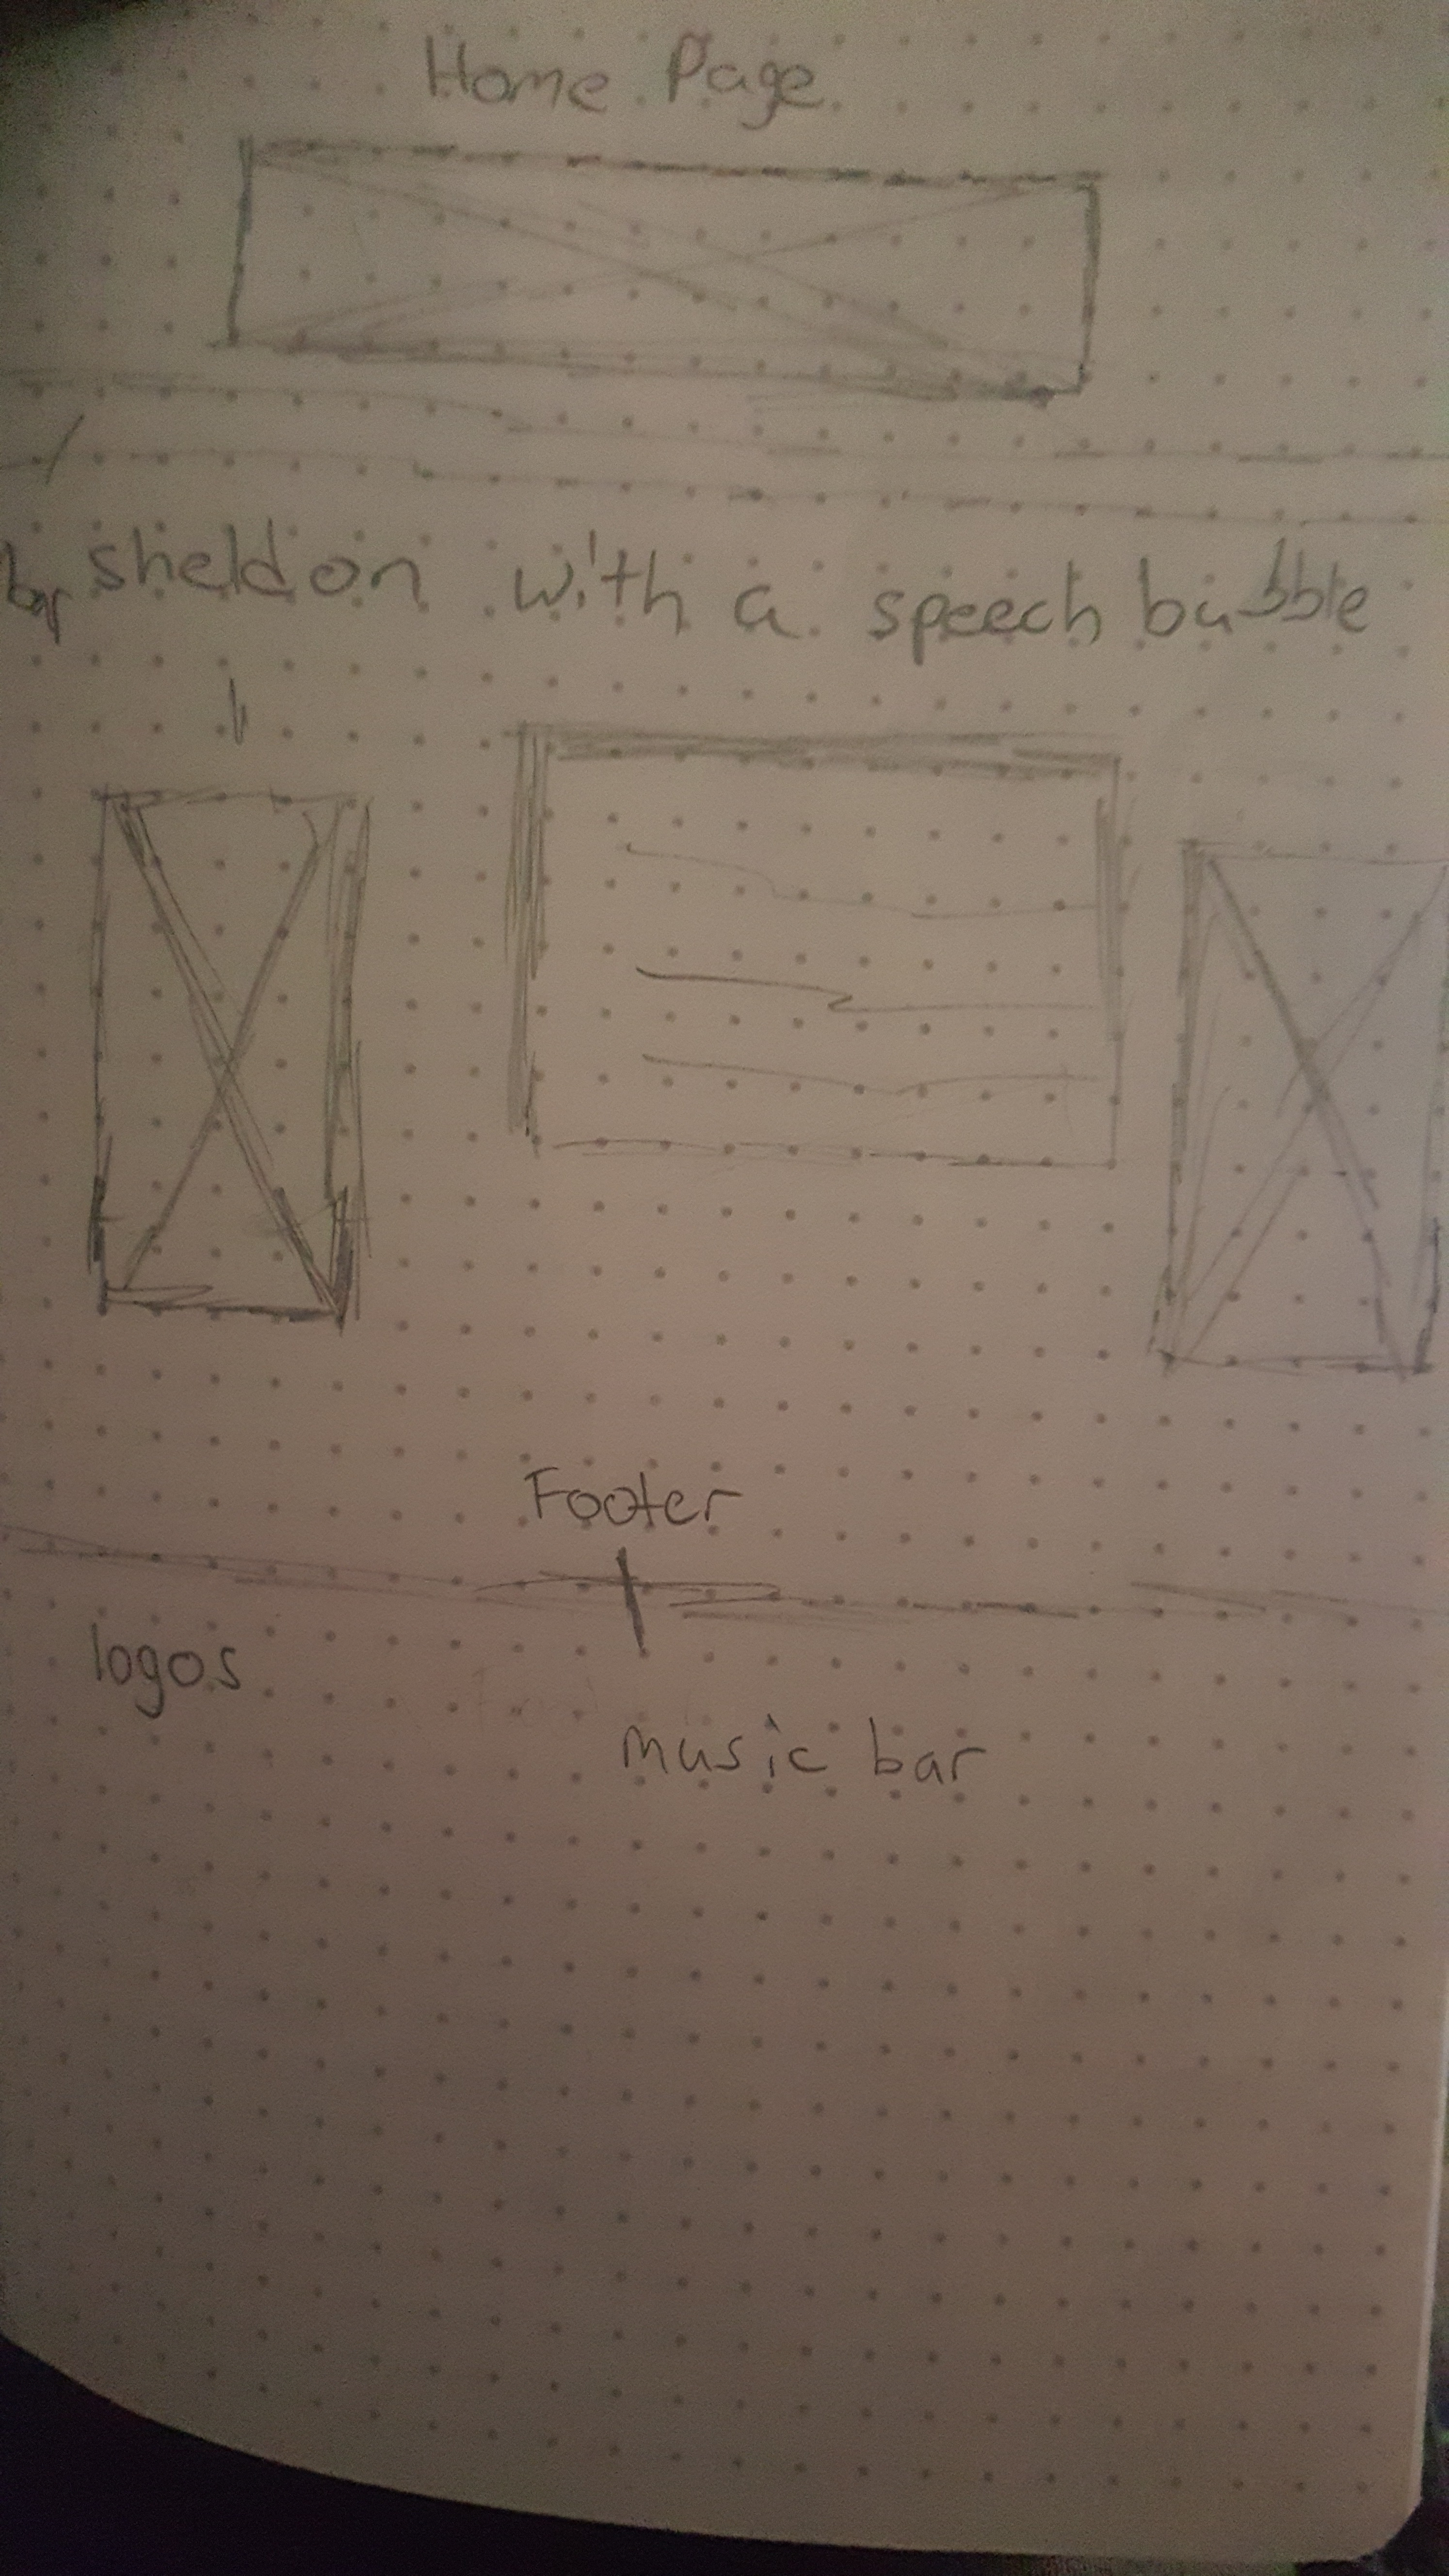 Home Page
bar sheldon with a speech bubble
Footer
logos
music bar